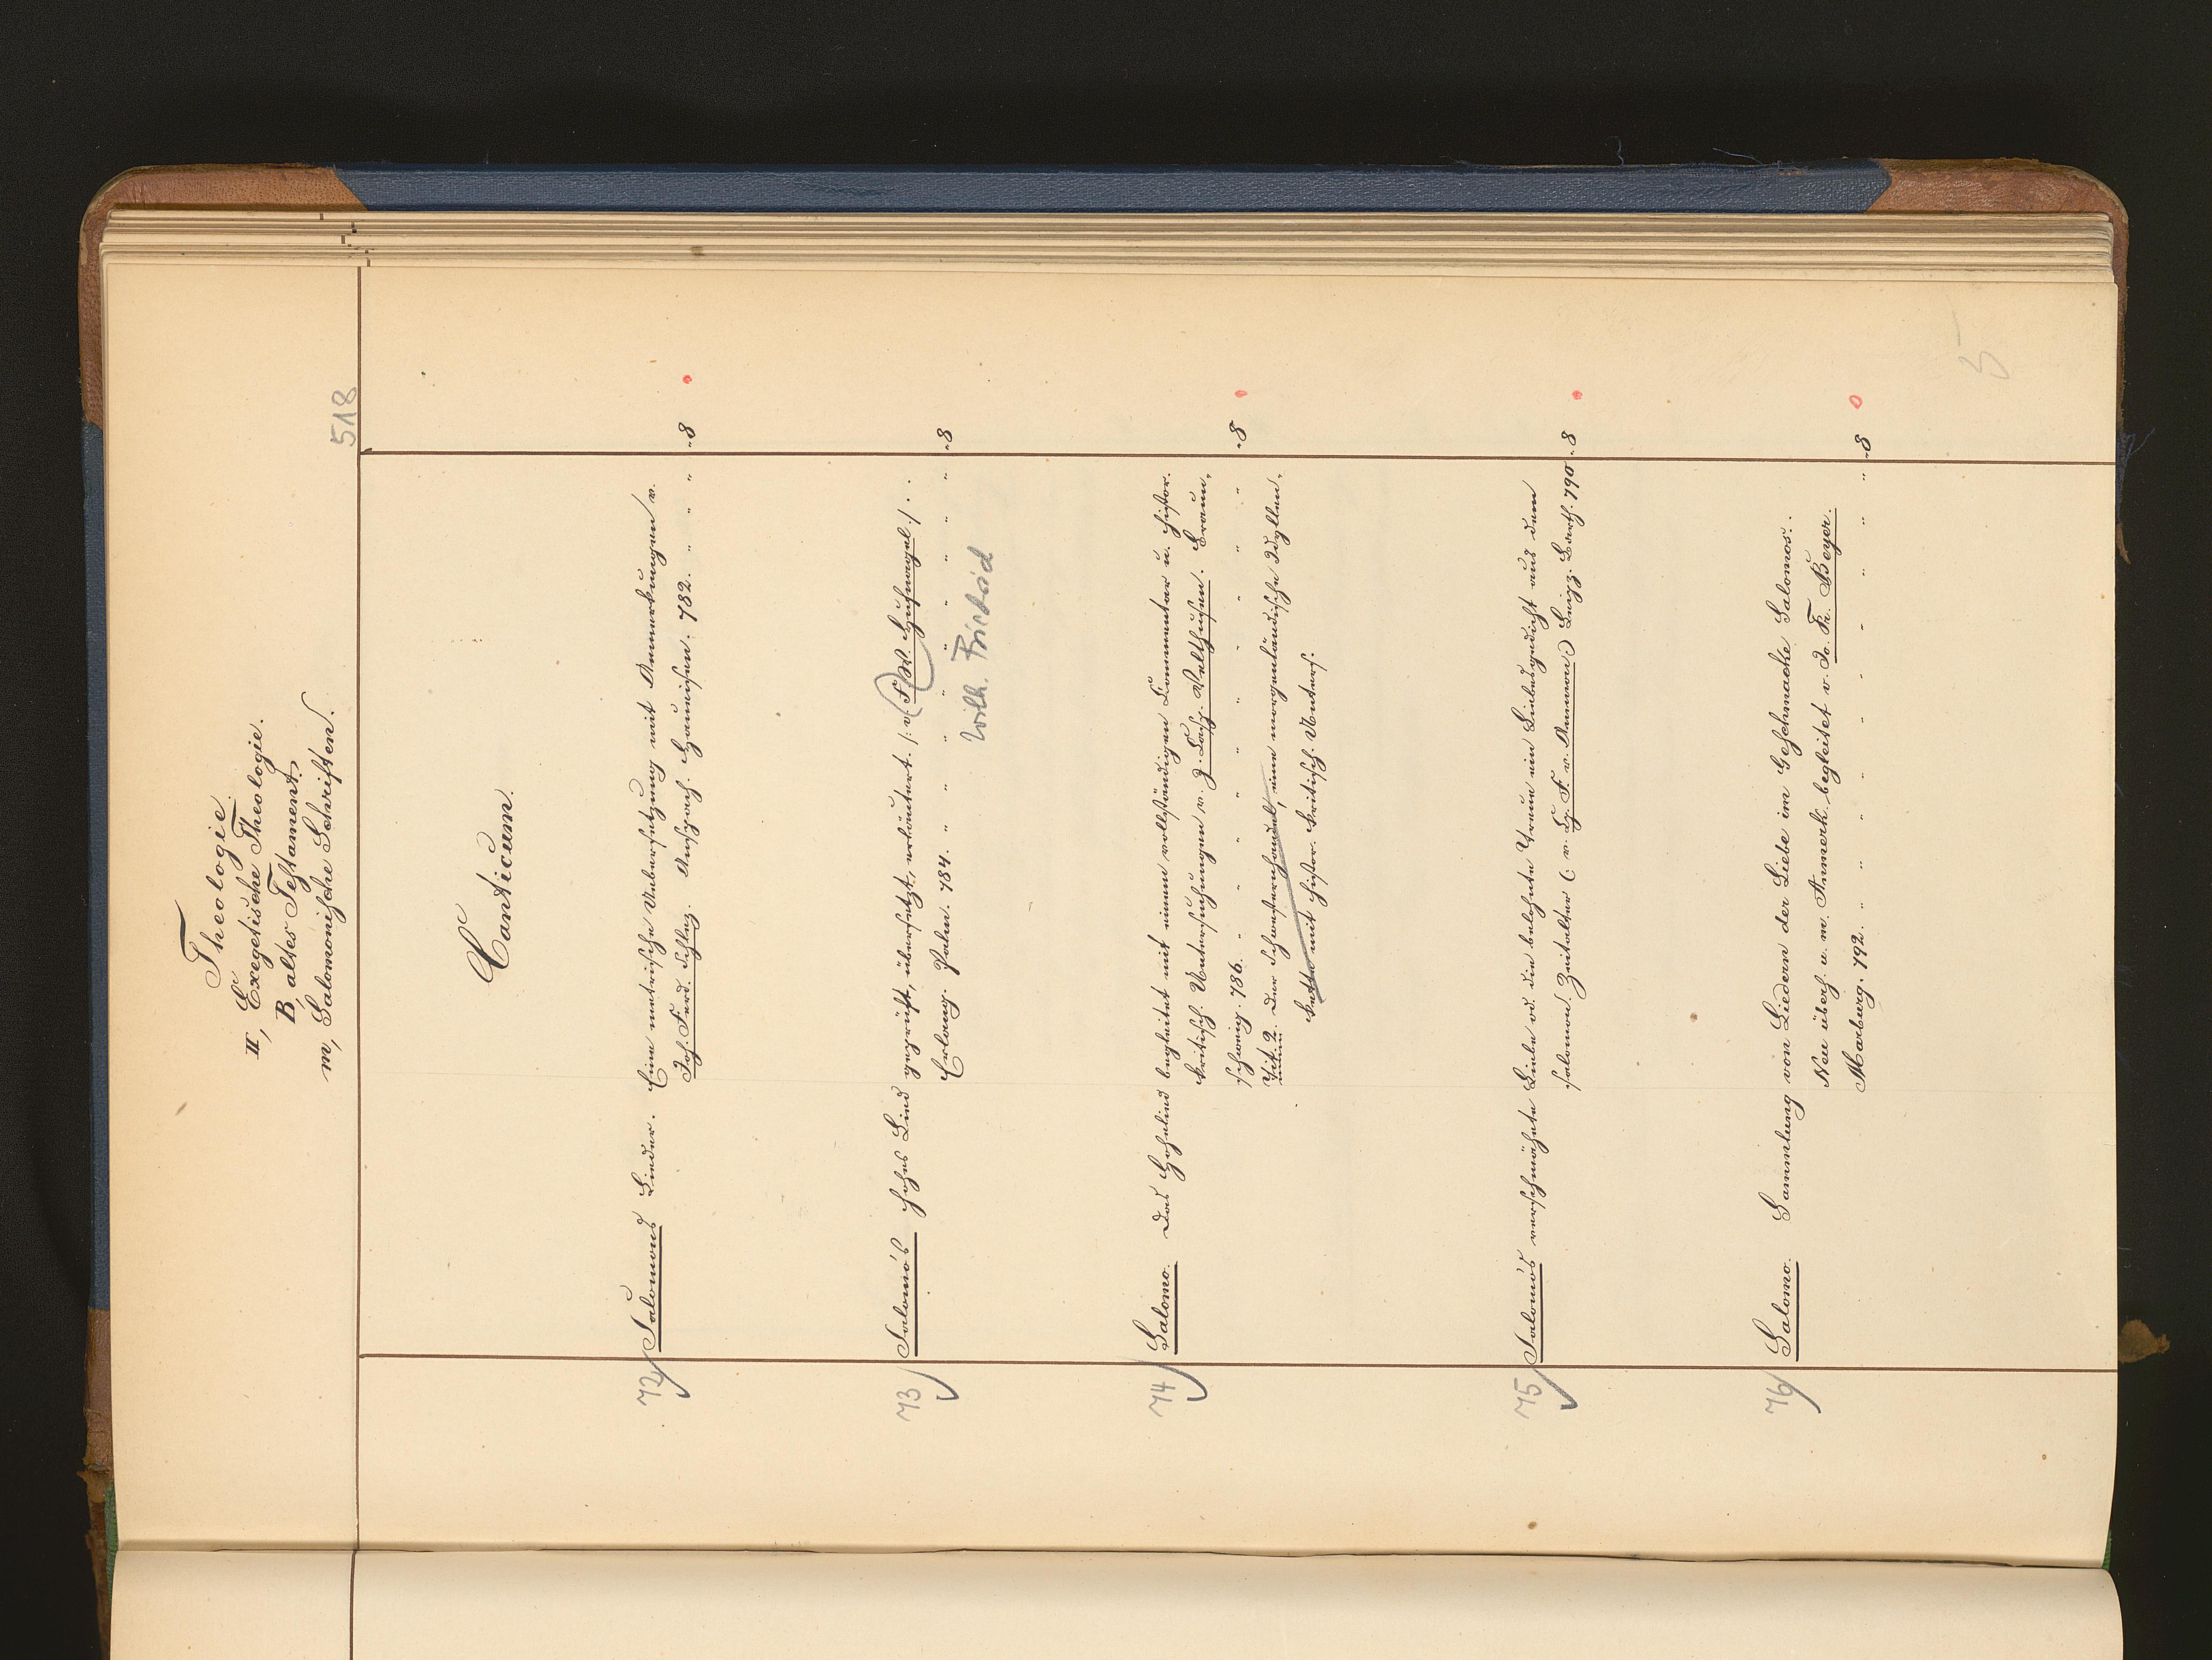 Theologie.
II, Exegetische Theologie.
B, altes Testament.
m, Salomonische Schriften.
518
Canticum.
72 Salomons Lieder. Eine metrische Uebersetzung mit Anmerkungen v.
Joh. Ferd. Schlez. Anspach. Haueisen. 782. " " " " 8
73 Salomo's hohes Lied geprüft, übersetzt, erläutert. /: v. F. W. Hufnagel. :/ . .
Erlang. Palm. 784. " " " " " " " " 8
Wilh. Friedrich
74 Salomo. Das Hohelied begleitet mit einem vollständigen Commentar u. histor.
kritisch. Untersuchungen v. J. Casp. Velthusen. Braun-
schweig. 786. " " " " " " " " 8
Tit. 2. Der Schwesternhandel, eine morgenländische Idyllen-
kette mit histor. kritisch. Unters.
75 Salomo's verschmähte Liebe od. die belohnte Treue ein Liebesgedicht aus dem
salomon. Zeitalter (: v. Ch. F. v. Ammon) Leipz. Barth. 790. 8
76 Salomo. Sammlung von Liedern der Liebe im Geschmacke Salomos.
Neu übers. u. m. Anmerk. begleitet v. Jo. Fr. Beyer.
Marburg. 792. " " " " " " " " 8
5